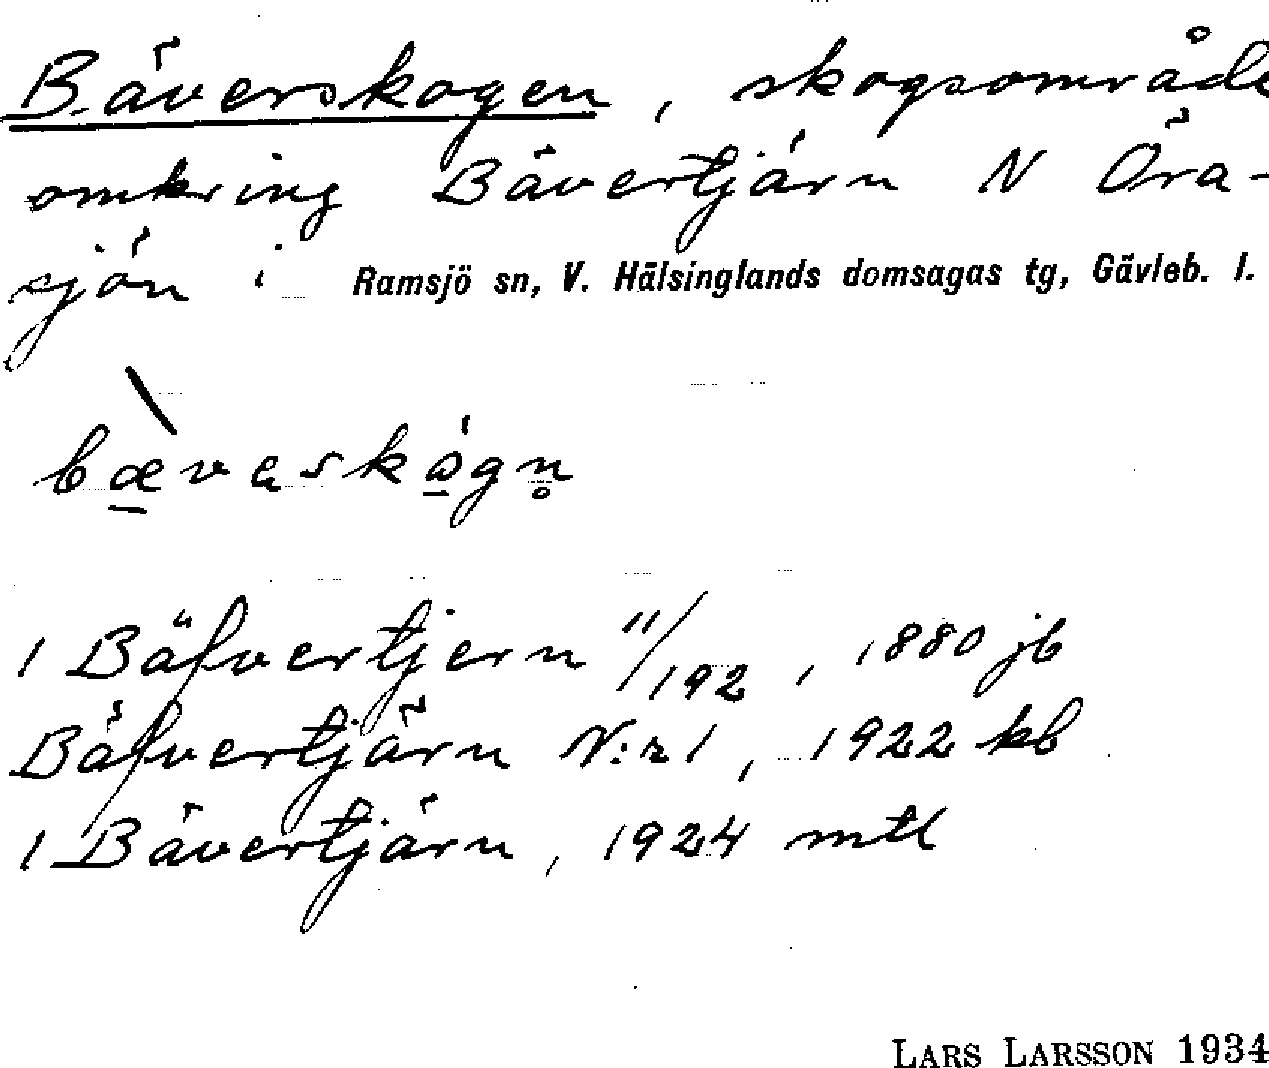 Bäverskogen, skogsområde
omkring Bävertjärn N Öra-
sjön i Ramsjö sn, V. Hälsinglands domsagas tg, Gävleb. l.
1 Bäfvertjern 11/192, 1880 jb
Bäfvertjärn N:r 1, 1922 kb
1 Bävertjärn, 1924 mtl
LARS LARSSON 1934